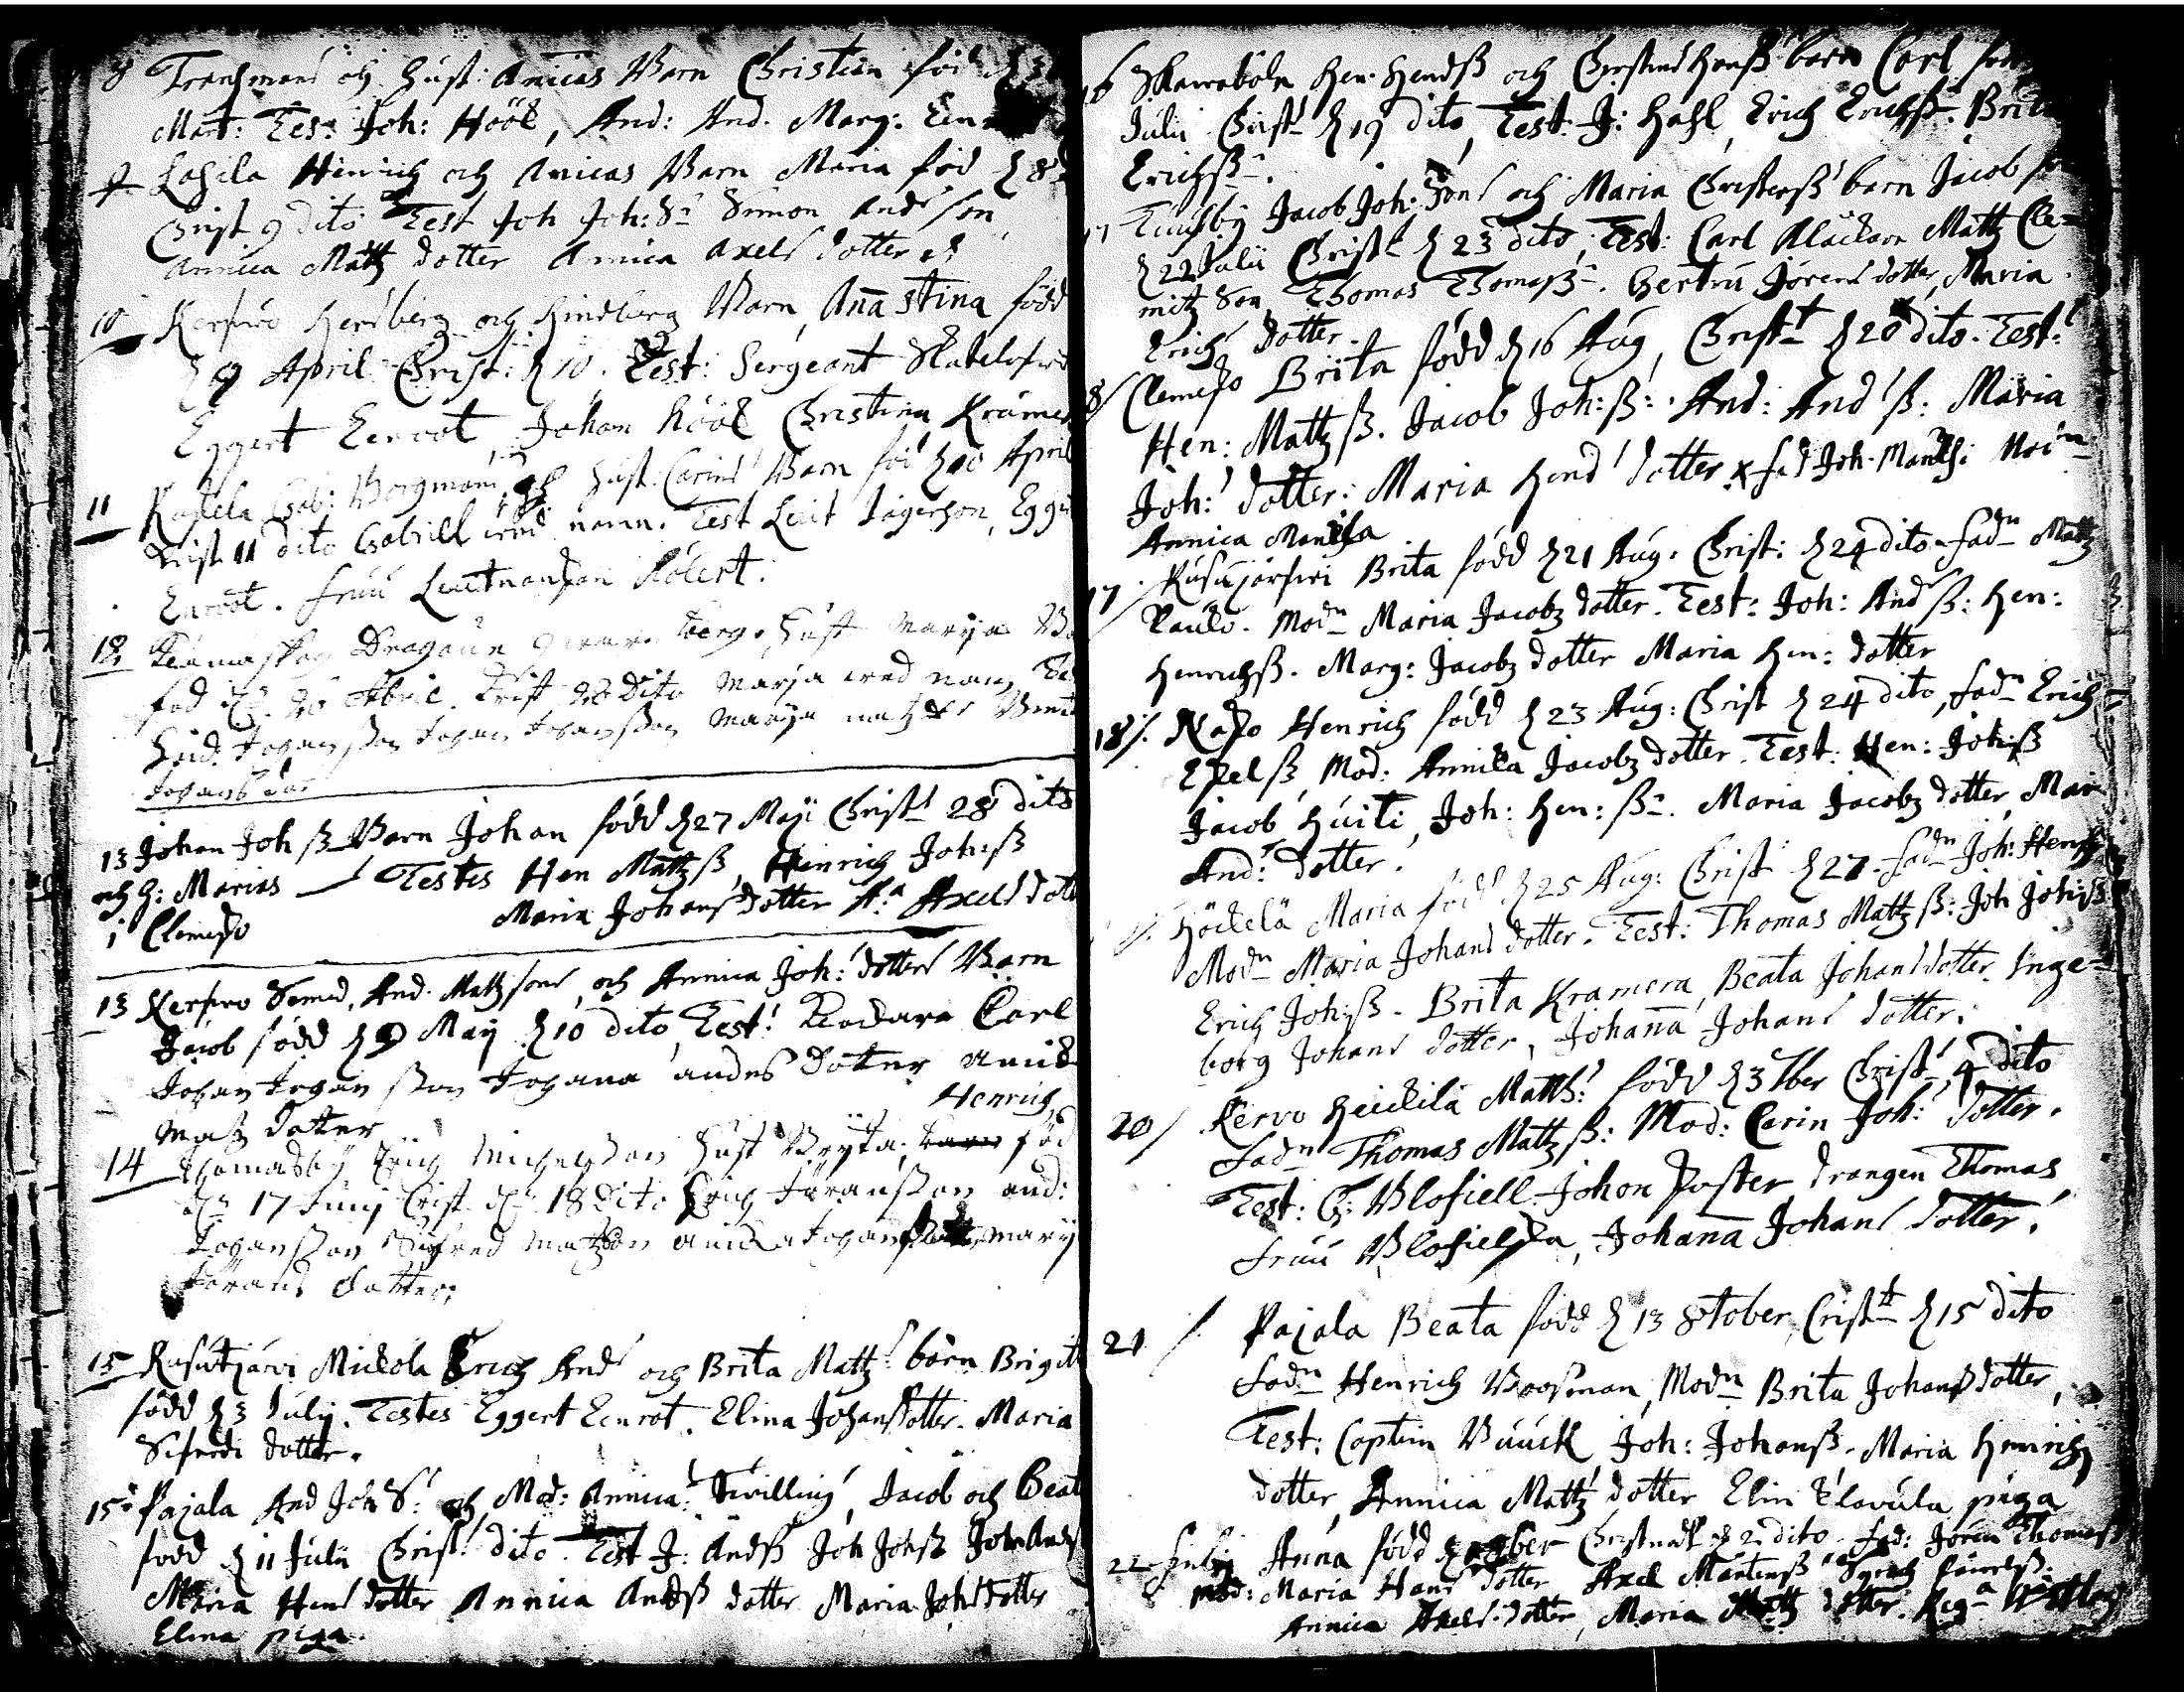 8 Transmans och Hust: Annicas Barn Christian föd d 3
Mart: Test: Joh: Höök, And: And. Marg:
9 Lassila Hinrich och Annicas Barn Maria föd d 8
Christ 9 dito Test Joh Joh: S: Simon Anderson
Annica Mattz dotter Annica Axels dotter
10 Kerfwo Hersberg och Hindberg Barn, Anna Stina född
d 9 April Christ: d 10. Test: Sergeant
Eggert Eenroot, Johan Höök Christina Krämer
11 Gab: Borgman, och Hust. Carins Barn föd d 10 April
Christ 11 dito Gabriell wid namn. Test Leut Jägerhon, Egge
Enroot. Fruu Leutnanskan
12 Dragoun Hust Marya
föd d 20 Abril Crist 20 Dito Marja wed nam
Johansson Johan Johansson Marya matz
13 Johan Joh ß Barn Johan född d 27 Maji Christ 28 dito
och H: Marias Testes Hen Mattz ß, Henrich Joh:ß
i Clemeso Maria Johans dotter A:a Axels dott
13 Kerfwo And. Matz sons, och Annica Joh: dotters Barn
Jacob född d 9 May d 10 dito, Test: Carl
Johan Johansson Johana andes Dotter
matz dotter Henrich
14 Thomasby Erich Michelson Hust Bryta, föd
d 17 Junj Crist d 18 Dito Erich Jöransson and:
Johansson Sigfred matzson annicka Johans mary
Jörans dotter
15 Rusutjärvi Mickola Erich And och Brita Mattz barn Brigit
född d 3 Julij. Testes Eggert Eenrot. Elina Johans dotter. Maria
Sifredi dotter.
15 Pajala And Joh S: och Mod: Annica: Twilling, Jacob och Beat
född d 11 Julii Christ: dito. Test J: Andß Joh Johß Joh
Maria Hens dotter Annica Andß dotter Maria Joh dotter
Elina piga.
16 Skavaböle Hen. Hendß och Christin Hanß barn Carl föd
Julii Christ d 19 dito, Test: J: Hahl, Erich Erichß: Brita
Erichß.
17 Tuusby Jacob Joh: Sons och Maria Christerß barn Jacob
d 22 Julii Christ d 23 dito, Test: Carl Mattz Cle-
mitz Son, Thomas Thomaß. Gertru Jörens dotter, Maria
Erich dotter.
8 Clemeso Brita född d 16 Aug, Christ d 20 dito. Test:
Hen: Mattz ß. Jacob Joh: ß: And: And ß: Maria
Joh: dotter: Maria Hend dotter x fad Joh
Annica
17 Rusujärfwi Brita född d 21 Aug: Christ: d 24 dito. Fadn Mattz
Paulo. Modn Maria Jacobz dotter. Test: Joh: And ß: Hen:
Henrichß. Marg: Jacobz dotter Maria Hen: dotter
18 Henrich född d 23 Aug: Christ d 24 dito, Fadn Erich
ß, Mod: Annika Jacobz dotter. Test: Hen: Joh:ß
Jacob Huiti, Joh: Hen: ß. Maria Jacobz dotter, Mari
And: dotter.
Höckelä Maria föd d 25 Aug: Christ d 27. Fadn Joh: Henß
Modn Maria Johans dotter. Test: Thomas Mattz ß: Joh Joh:ß
Erich Joh:ß. Brita Kramera, Beata Johans dotter. Inge-
borg Johans dotter, Johana Johans dotter.
20 Kervo Heickilä Matths: född d 3 7ber Christ 4 dito
Fadn Thomas Mattz ß: Mod: Carin Joh: dotter.
Test: Blofiell Johon Poster drangen Thomas
Fruu Blofielska, Johana Johans dotter.
21 Pajala Beata född d 13 8tober, Crist d 15 dito
Fadn Henrich Boosman, Modn Brita Johans dotter,
Test: Captein Buuck Joh: Johanß. Maria Henrichz
dotter, Annica Mattz dotter Elin Clavula piga
22 Anna född 9ber Christnad d 2 dito. Fad: Jören Thomaß
Mod: Maria Hans dotter Axel Mårtenß
Annica Axels dotter, Maria Mattz dotter.